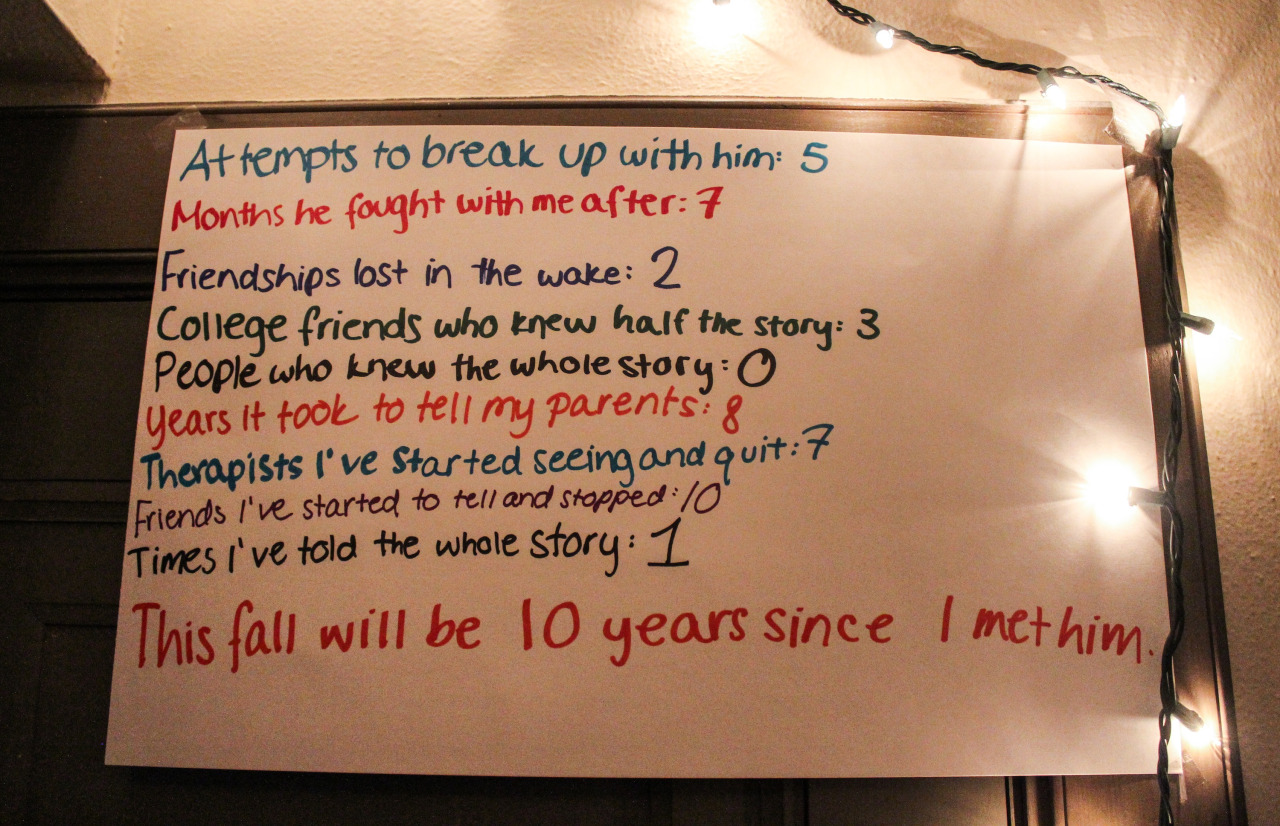 Attempts to break up with him: 5
Months he fought with me after: 7
Friendships lost in the wake: 2
College friends who knew half the story: 3
People who knew the whole story: 0
Years it took to tell my parents: 8
Therapists I've started seeing and quit: 7
Friends I've started to tell and stopped: 10
Times I've told the whole story: 1
This fall will be 10 years since I met him.